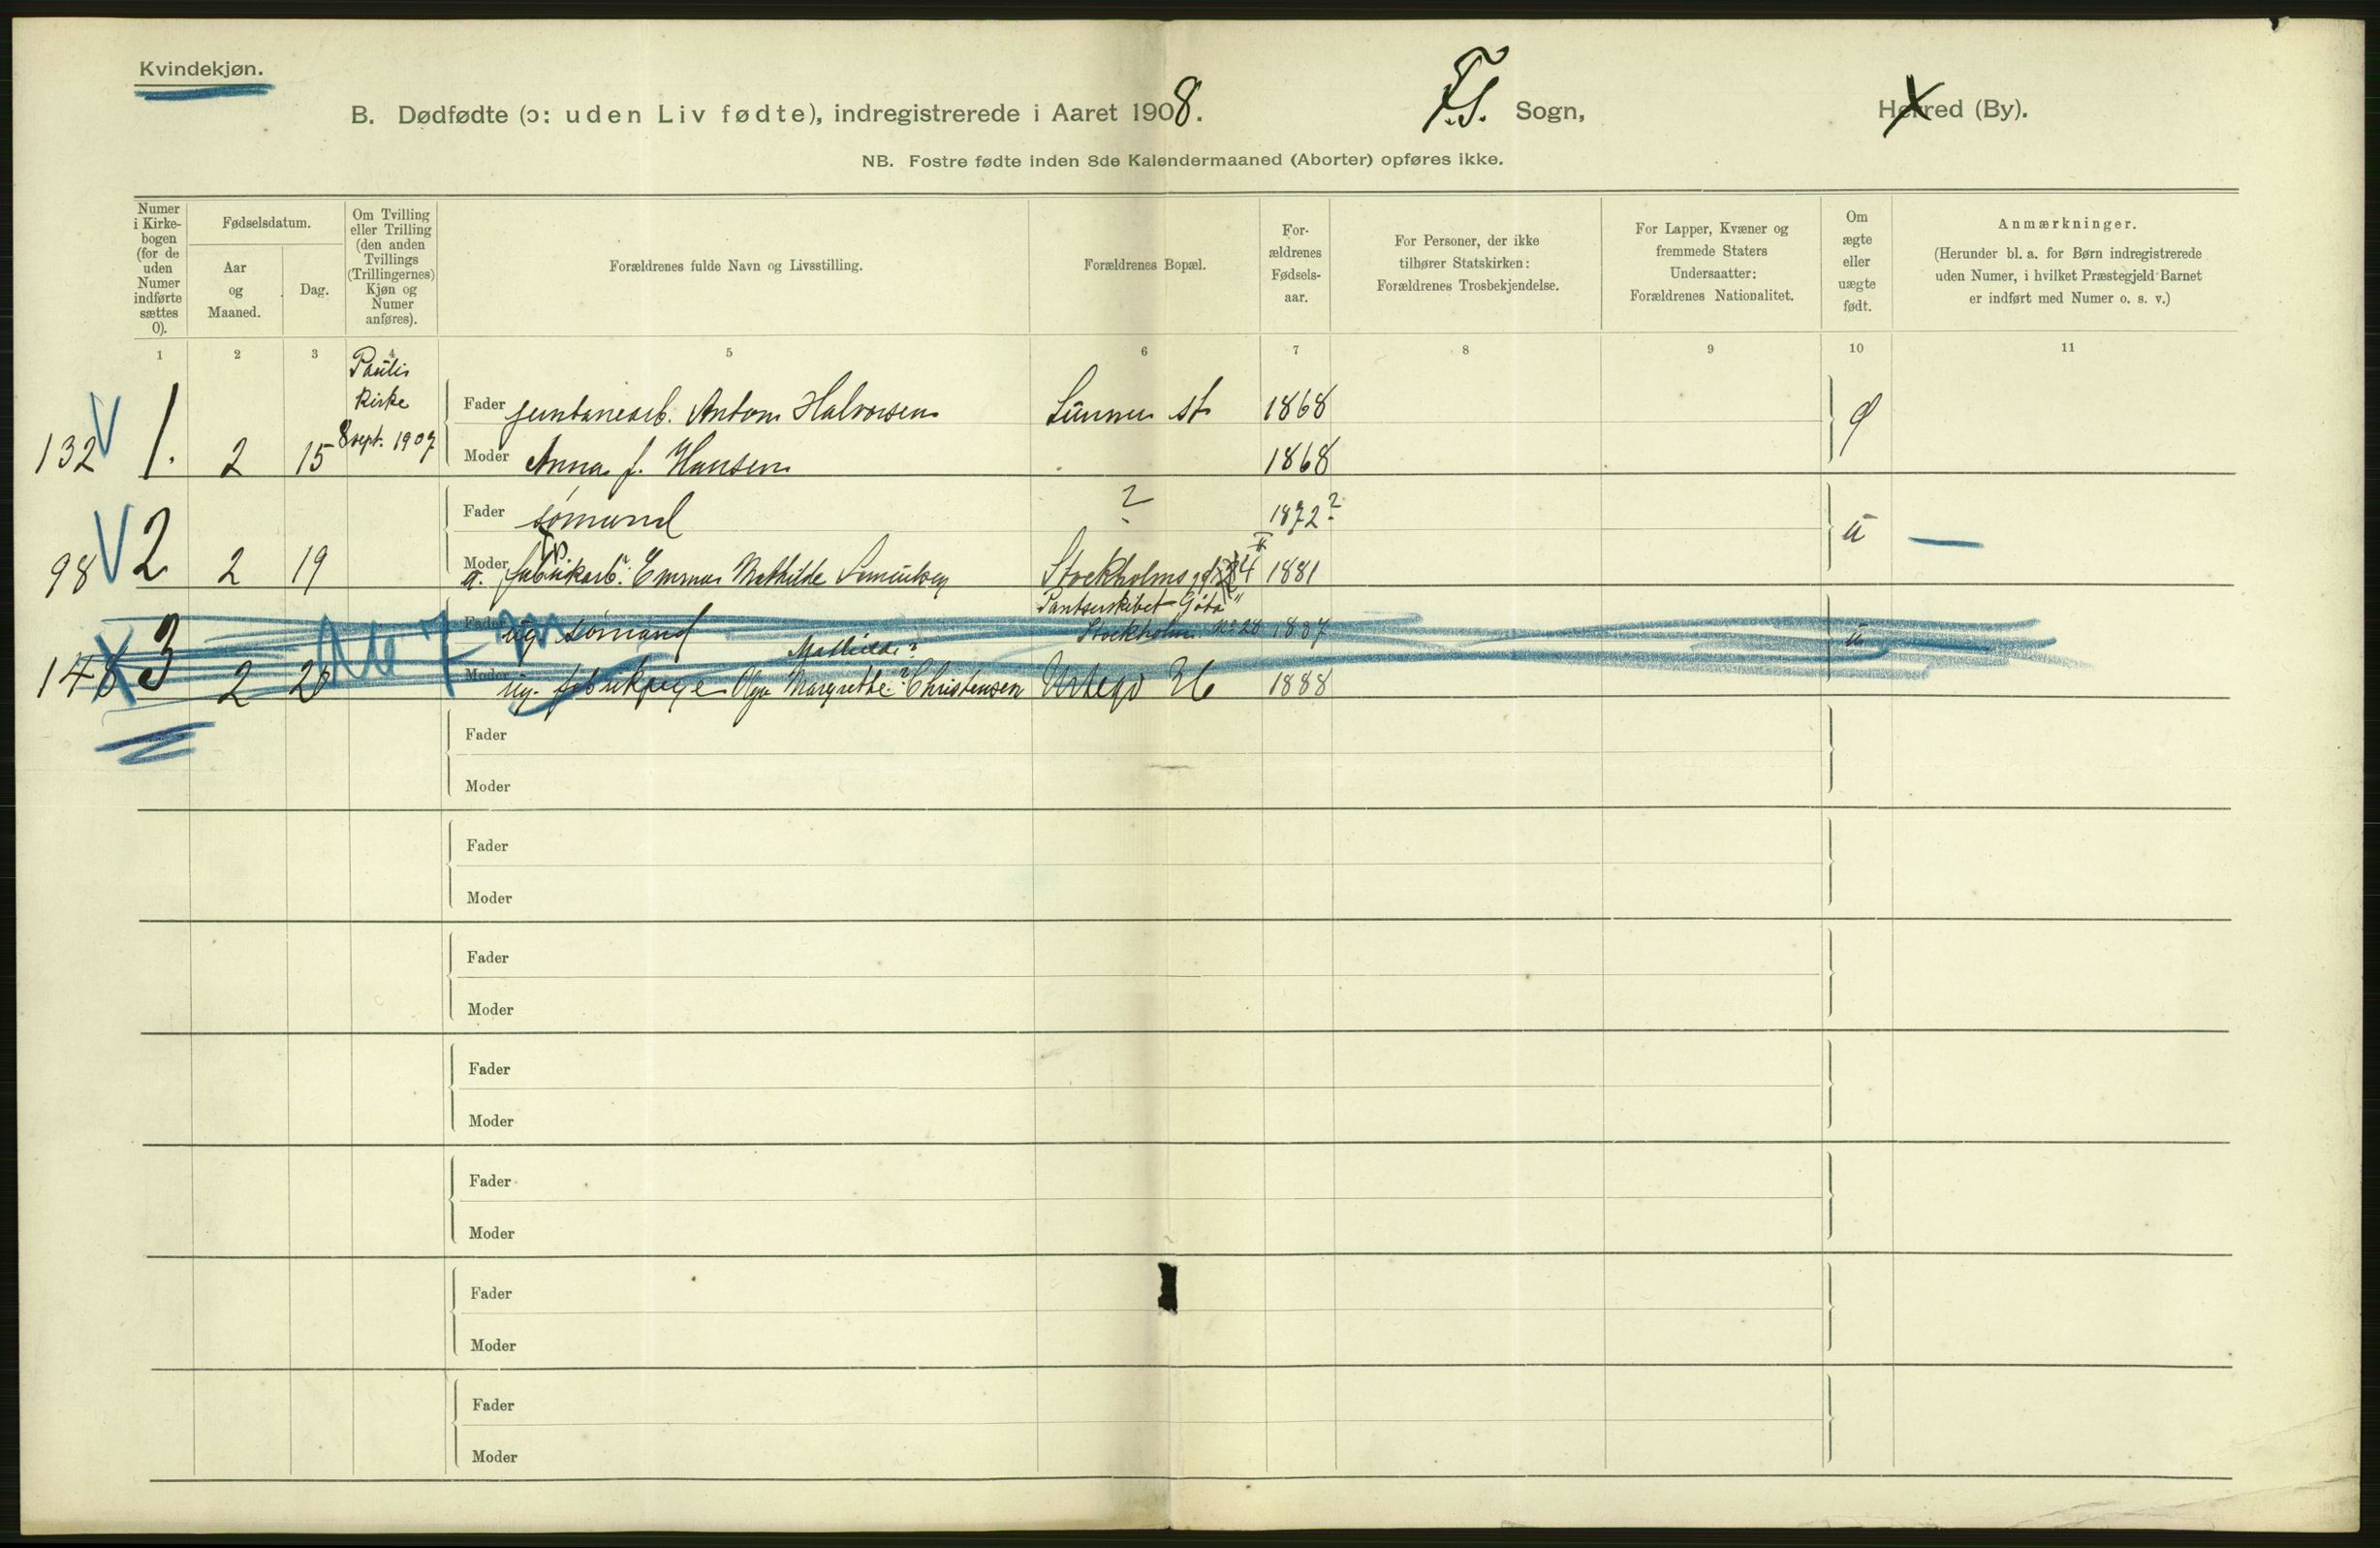 Kvindekjøn.
B. Dødfødte (ɔ: uden Liv fødte), indregistrerede i Aaret 1908.
F.S. Sogn,
Herred (By).
NB. Fostre fødte inden 8de Kalendermaaned (Aborter) opføres ikke.
Numer
i Kirke-
bogen
(for de
uden
Numer
indførte
sættes
0).
Fødselsdatum.
Aar
og
Maaned.
Dag.
Om Tvilling
eller Trilling
(den anden
Tvillings
(Trillingernes)
Kjøn og
Numer
anføres).
Forældrenes fulde Navn og Livsstilling.
Forældrenes Bopæl.
For-
ældrenes
Fødsels-
aar.
For Personer, der ikke
tilhører Statskirken:
Forældrenes Trosbekjendelse.
For Lapper, Kvæner og
fremmede Staters
Undersaatter:
Forældrenes Nationalitet.
Om
ægte
eller
uægte
født.
Anmærkninger.
(Herunder bl. a. for Børn indregistrerede
uden Numer, i hvilket Præstegjeld Barnet
er indført med Numer o. s. v.)
1 2 3 4 5 6 7 8 9 10 11
Paulis
Kirke
8 sept. 1907
Fader Anton Halvorsen 1868
132 1. 2 15 Moder Anna f. Hansen 1868
Fader sømand ? 1872?
98 2 2 19 Moder fabrikarb. Emma Mathilde Stockholmsgd 1881
Pantserskibet "Göta"
Fader ug sømand Stockholm No 28 1887 u
Mathilde?
148 3 2 28 Moder ug. fabrikpige Olga Margrethe? Christensen Urtegd 1888
Fader
Moder
Fader
Moder
Fader
Moder
Fader
Moder
Fader
Moder
Fader
Moder
Fader
Moder